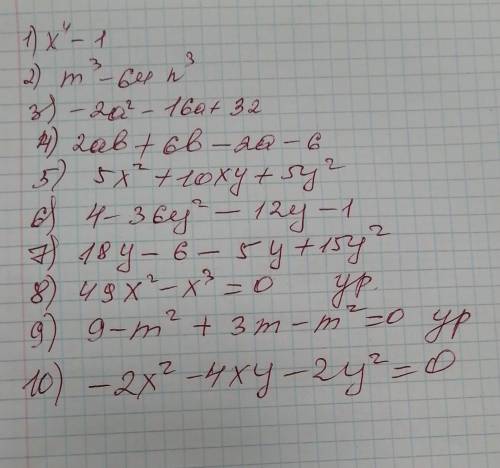 1) x⁴ - 1
2) m³ - 64 n³
3) -2a² - 16a + 32
4) 2ab + 6b - 2a - 6
5) 5x² + 10xy + 5y²
6) 4 - 36y² - 12y - 1
7) 18y - 6 - 5y + 15y²
8) 49x² - x³ = 0 ур
9) 9 - m² + 3m - m² = 0 ур
10) -2x² - 4xy - 2y² = 0